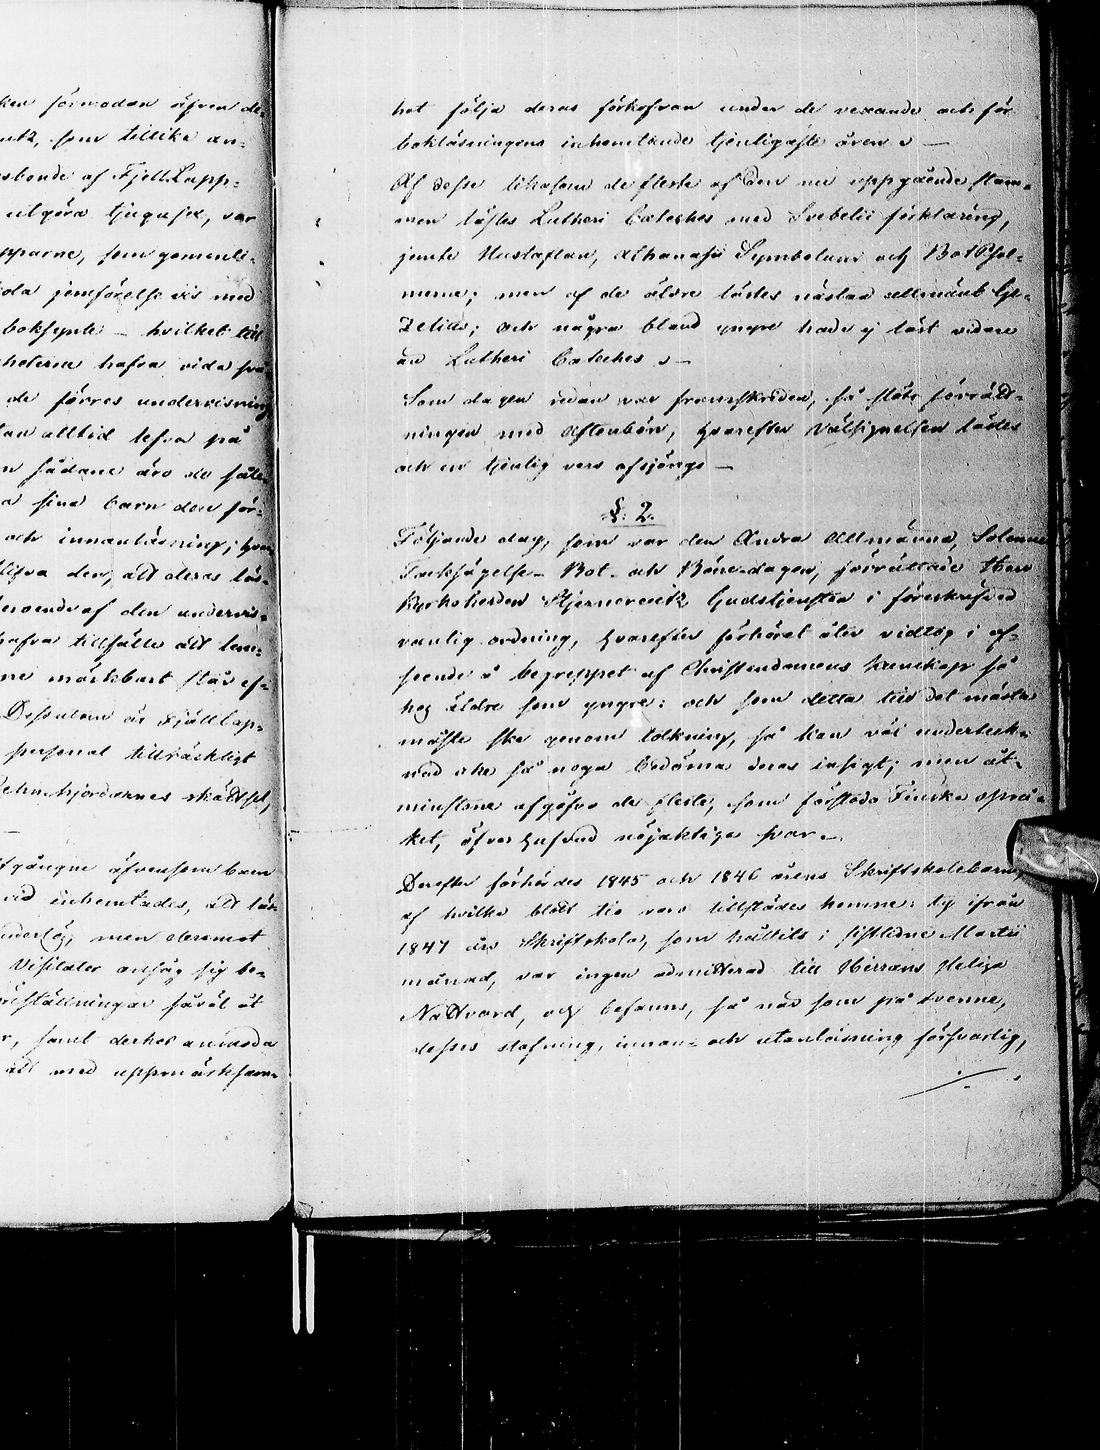 ken förmodan äfven de-
som tillike an-
bonde af FjellLapp-
utgöra tjugusex, var
pparne, som gemenli-
da jemförelse vis med
boksynte – hvilket till
heterne hafva vida
de förres undervisning
alltid lefva på
sådane äro de
a sina barn den för-
och innanläsning;
den, att deras läs-
beroende af den undervis-
hafva tillfälle att lem-
ne märkbart
Dessutom är Fjälllap-
personal tillräckligt
Rehnhjordarnes skötsel,
gångne äfvensom barn
vid inhemtades, att läs-
men deremot
Visitator ansåg sig be-
reställningar såväl åt
samt derhos använda
att med uppmärksam-
het följa deras förkofran under de vexande och för
bokläsningens inhemtande tjenligaste åren –
Af desse likasom de fleste af den nu uppgående stam-
men lästes Lutheri Cateches med Svebelii förklaring,
jemte Hustaflan, Athanasii Symbolum och BotPsal-
merne; men af de äldre lästes nästan allmänt
och några bland yngre hade ej läst vidare
än Lutheri Cateches –
Som dagen redan var framskriden, så slöts förrätt-
ningen med Aftonbön, hvarefter Välsignelsen lästes
och en tjenlig vers afsjöngs –
§. 2.
Följande dag, som var den Andra Allmänna, Solenna
Tacksägelse- Bot- och Böne-dagen, förrättade Herr
Kyrkoherden Stjernoreutz Gudstjensten i föreskrifven
vanlig ordning, hvarefter förhöret åter vidtog i af-
seende å begreppet af Christendomens kunskap så
hos äldre som yngre: och som detta till det mästa
måste ske genom tolkning, så kan väl underteck-
nad icke så noga bedöma deras insigt; men åt-
minstone afgåfvo de fleste, som förstodo Finska språ-
ket, öfver hufvud nöjaktiga svar –
Derefter förhördes 1845 och 1846 årens Skriftskolebarn,
af hvilka blott tio voro tillstädes komne: ty ifrån
1847 års Skriftskola, som hållits i sistlidne Martii
månad, var ingen admitterad till Herrans Heliga
Nattvard, och befanns, så när som på tvenne,
desses stafning, innan- och utanläsning försvarlig,